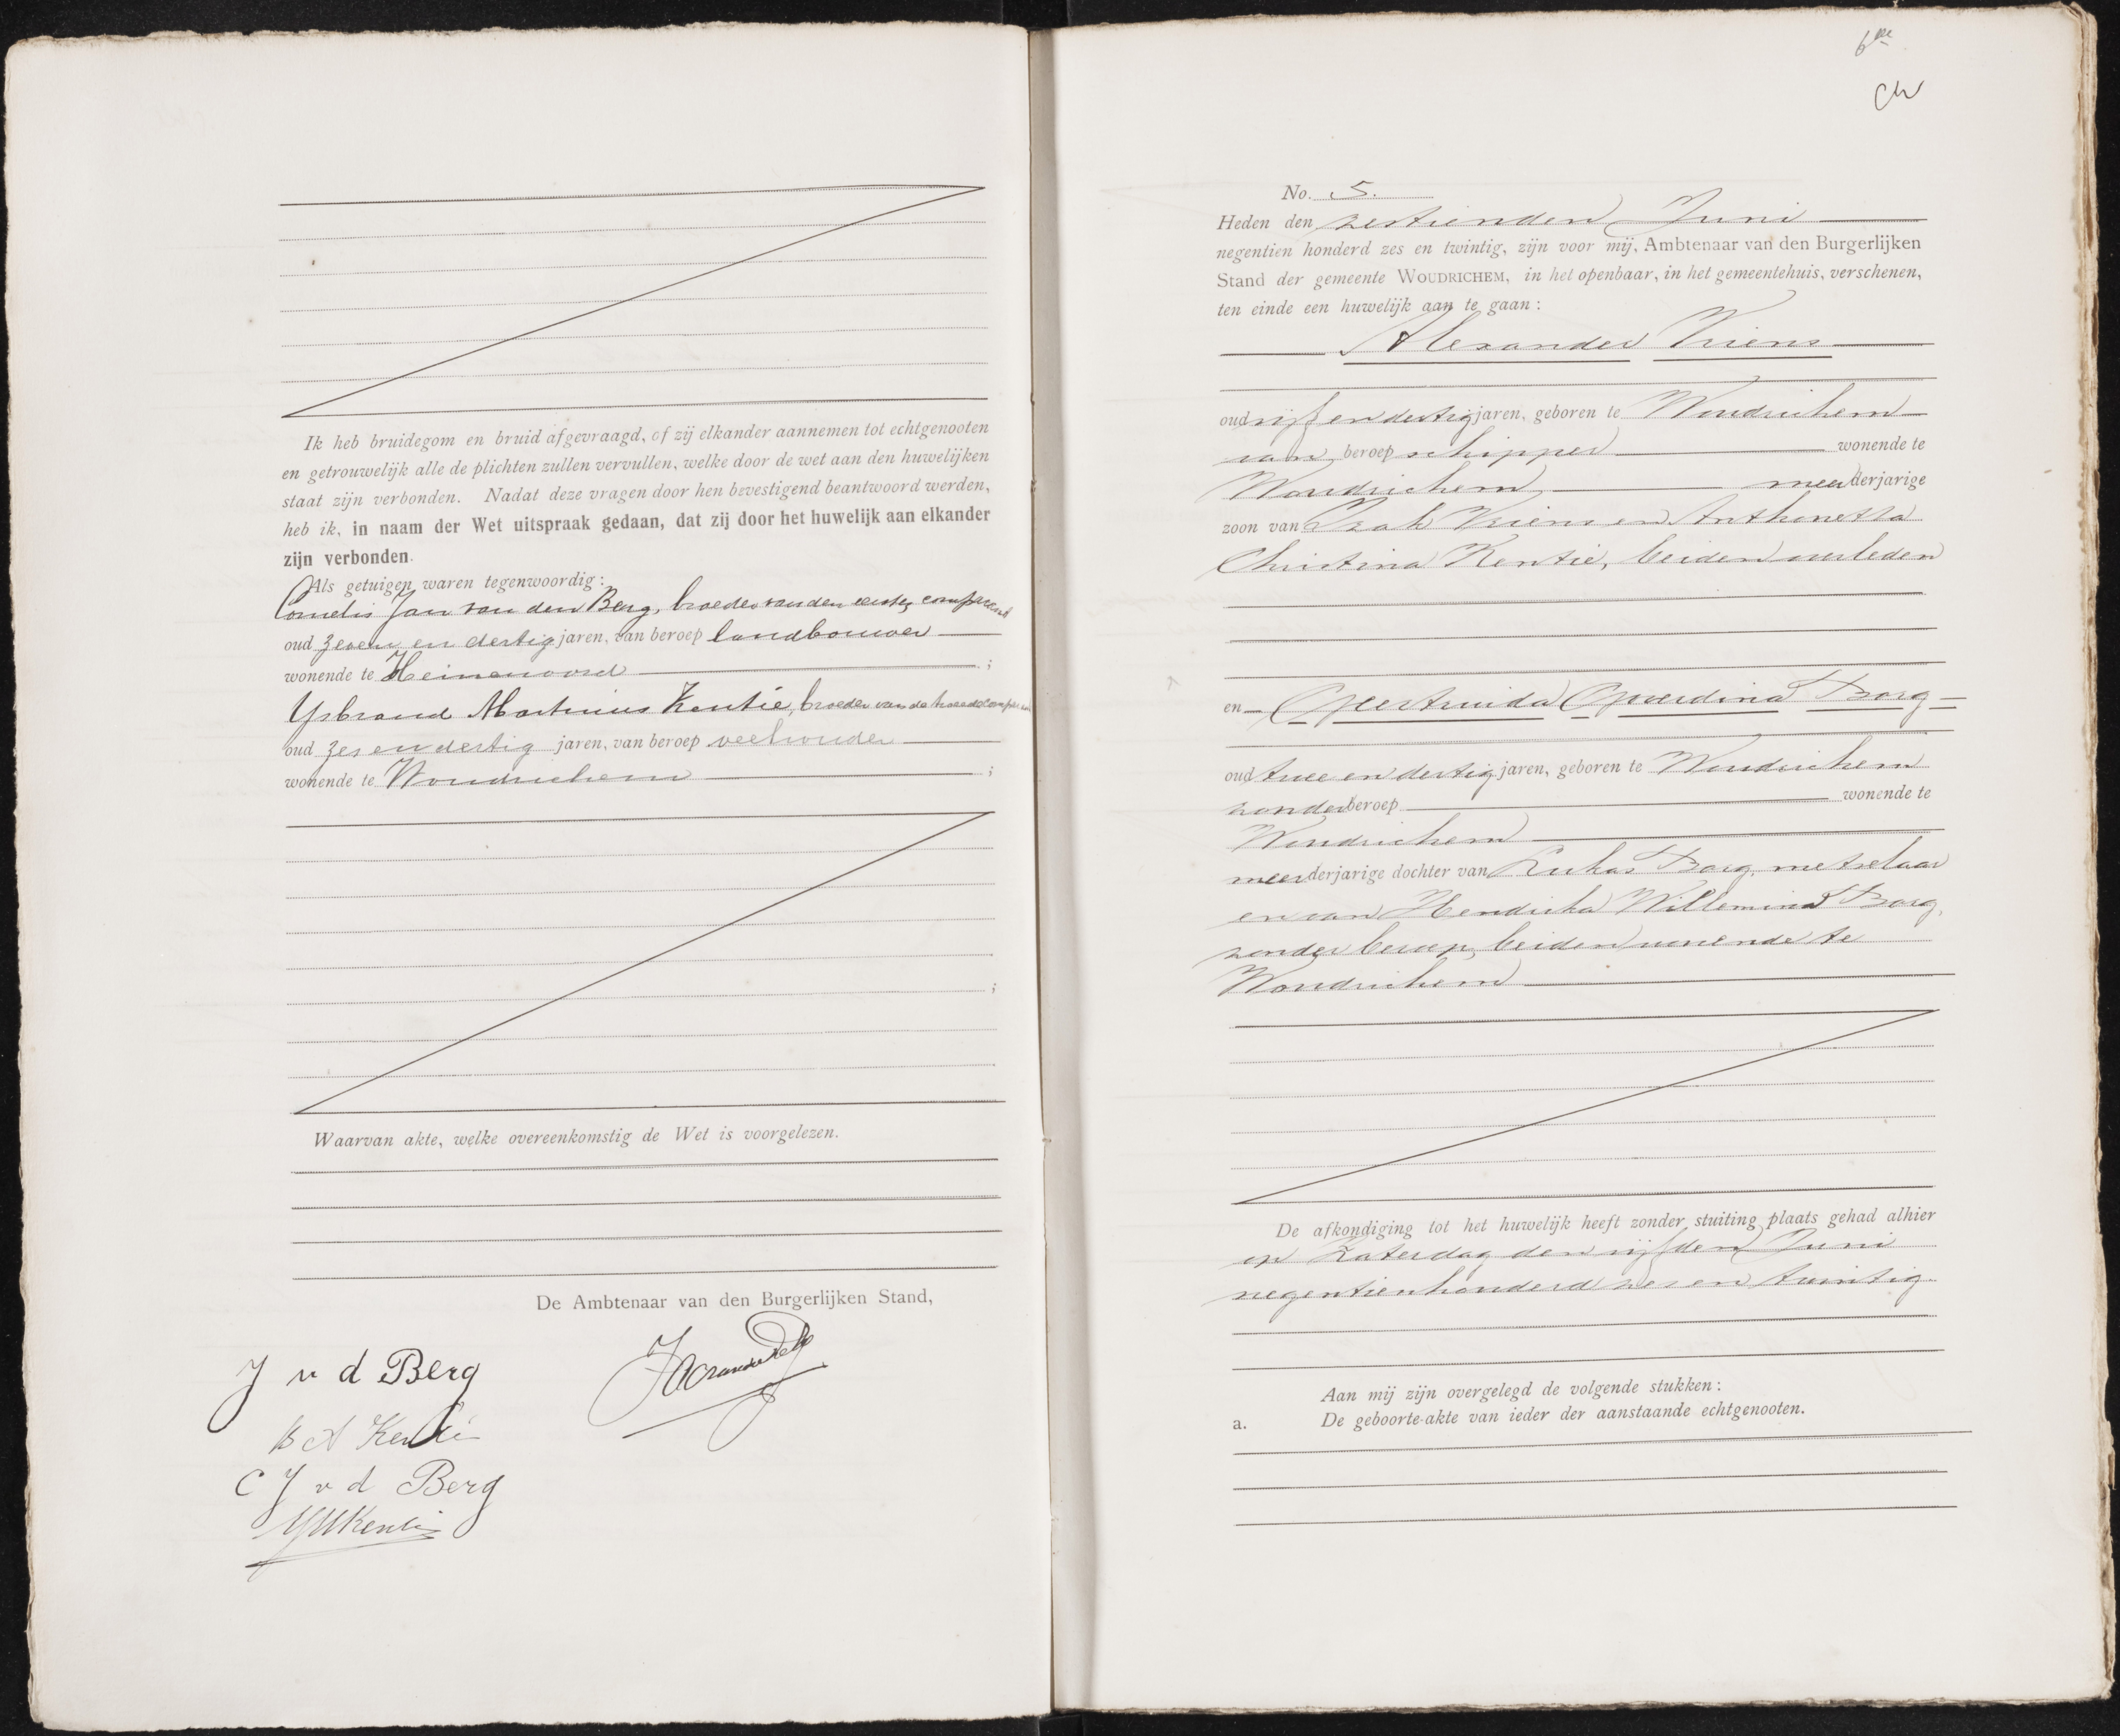 Ik heb bruidegom en bruid afgevraagd, of zij elkander aannemen tot echtgenooten
en getrouwelijk alle de plichten zullen vervullen, welke door de wet aan den huwelijken
staat zijn verbonden. Nadat deze vragen door hen bevestigend beantwoord werden,
heb ik, in naam der Wet uitspraak gedaan, dat zij door het huwelijk aan elkander
zijn verbonden.
Als getuigen waren tegenwoordig:
Cornelis Jan van den Berg, broeder van den eersten comparant
oud zeven en dertig jaren, van beroep landbouwer
wonende te Heinenoord ;
Ysbrand Martinus Kentie, broeder van de tweede comparante
oud zes en dertig jaren, van beroep veehouder
wonende te Woudrichem ;
;
Waarvan akte, welke overeenkomstig de Wet is voorgelezen.
De Ambtenaar van den Burgerlijken Stand,
J v d Berg
B A Kentie
C J v d Berg
YMKentie
6de
No. 5.
Heden den zestienden Juni
negentien honderd zes en twintig, zijn voor mij, Ambtenaar van den Burgerlijken
Stand der gemeente WOUDRICHEM, in het openbaar, in het gemeentehuis, verschenen,
ten einde een huwelijk aan te gaan:
Alexander Vriens
oud vijf en dertig jaren, geboren te Woudrichem
van beroep schipper wonende te
Woudrichem, meerderjarige
zoon van Izak Vriens en Anthonetta
Christina Kentie, beiden overleden
en Geertruida Gerardina Borg
oud twee en dertig jaren, geboren te Woudrichem
zonder beroep wonende te
Woudrichem
meerderjarige dochter van Lukas Borg, metselaar
en van Hendrika Willemina Borg,
zonder beroep, beiden wonende te
Woudrichem
De afkondiging tot het huwelijk heeft zonder stuiting plaats gehad alhier
op Zaterdag den vijfden Juni
negentienhonderd zes en twintig.
Aan mij zijn overgelegd de volgende stukken:
a. De geboorte-akte van ieder der aanstaande echtgenooten.